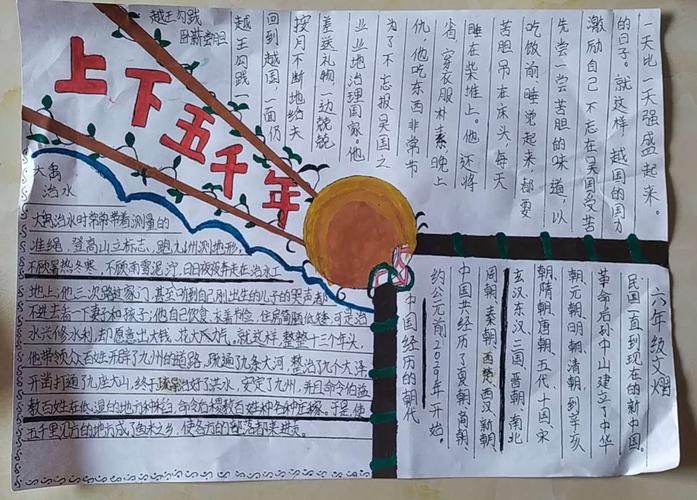 上下五千年
越王勾践
卧薪尝胆
越王勾践
回到越国,一面仍
按月不断地给夫
差送礼物一边兢兢
业业地治理国家。他
为了不忘报吴国之
仇,他吃东西非常节
省,穿衣服朴素,晚上
睡在柴堆上。他还将
苦胆吊在床头,每天
吃饭前睡觉起来都要
先尝一尝苦胆的味道,以
激励自己不忘在吴国受苦
的日子。就这样越国的国力
一天比一天强盛起来。
大禹
治水
大禹治水时常常带着测量的
准绳,登高山立标志,跑九州测地形,
不顾暑热冬寒,不顾雨雪泥泞,日日夜夜奔走在治水工
地上,他三次路过家门,甚至听到自己刚出生的儿子的哭声都
不进去看一下妻子和孩子;他自己饮食、衣着朴俭,住房简陋低矮,可是治
水兴修水利,却愿意出大钱,花大力气。就这样,整整十三个年头,
他带领众百姓开辟了九州的道路,疏通九条大河,整治了九个大泽,
开凿打通九座大山,终于疏导治好了洪水,安定了九州,并且命令伯益
教百姓在低湿的地方种稻,命令后稷教百姓种各种庄稼。于是,使
五千里见方的地方成了鱼米之乡,使各方的部落都来进贡。
中国经历的朝代
约公元前2070年开始。
中国共经历了夏朝、商朝、
周朝、秦朝、西楚、西汉、新朝
玄汉、东汉、三国、晋朝、南北
朝、隋朝、唐朝、五代、十国、宋
朝、元朝、明朝、清朝、到辛亥
革命后孙中山建立了中华
民国一直到现在的新中国。
六年级文熠